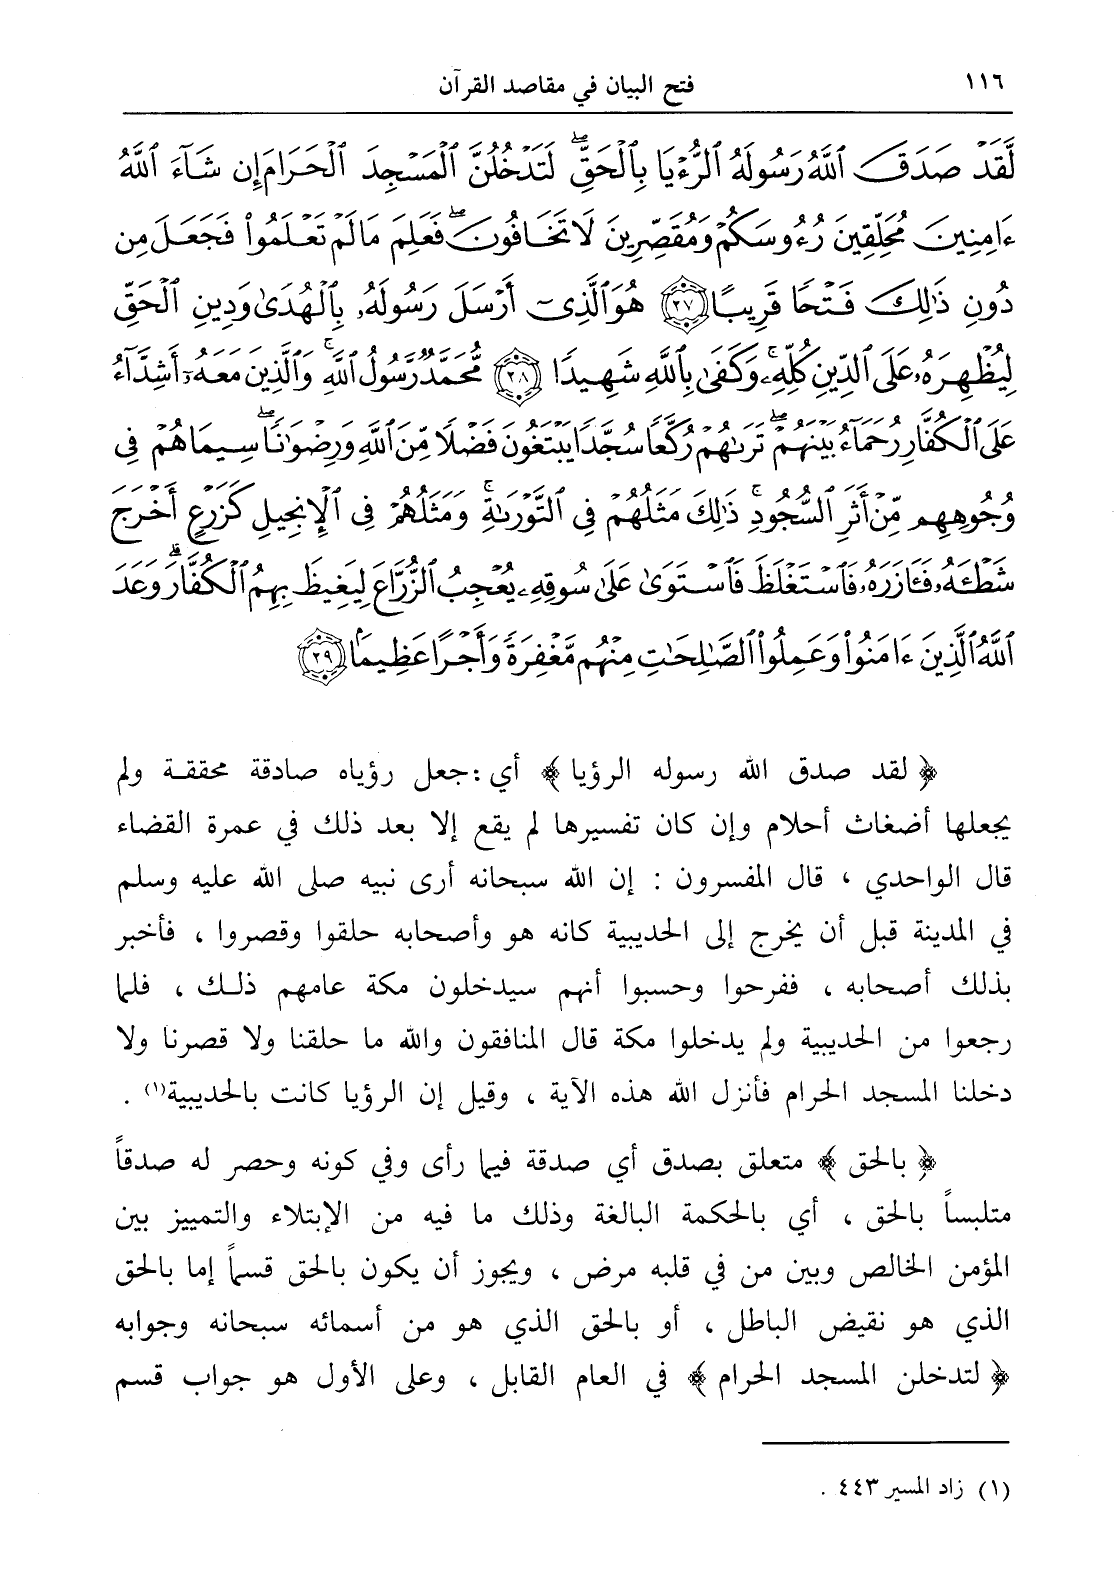 ١١٦
فتح البيان في مقاصد القرآن
لَّقَدْ صَدَقَ ٱللَّهُ رَسُولَهُ ٱلرُّءْيَا بِٱلْحَقِّ ۖ لَتَدْخُلُنَّ ٱلْمَسْجِدَ ٱلْحَرَامَ إِن شَآءَ ٱللَّهُ
ءَامِنِينَ مُحَلِّقِينَ رُءُوسَكُمْ وَمُقَصِّرِينَ لَا تَخَافُونَ ۖ فَعَلِمَ مَا لَمْ تَعْلَمُوا۟ فَجَعَلَ مِن
دُونِ ذَٰلِكَ فَتْحًا قَرِيبًا ﴿٢٧﴾ هُوَ ٱلَّذِىٓ أَرْسَلَ رَسُولَهُۥ بِٱلْهُدَىٰ وَدِينِ ٱلْحَقِّ
لِيُظْهِرَهُۥ عَلَى ٱلدِّينِ كُلِّهِۦ ۚ وَكَفَىٰ بِٱللَّهِ شَهِيدًا ﴿٢٨﴾ مُّحَمَّدٌ رَّسُولُ ٱللَّهِ ۚ وَٱلَّذِينَ مَعَهُۥٓ أَشِدَّآءُ
عَلَى ٱلْكُفَّارِ رُحَمَآءُ بَيْنَهُمْ ۖ تَرَىٰهُمْ رُكَّعًا سُجَّدًا يَبْتَغُونَ فَضْلًا مِّنَ ٱللَّهِ وَرِضْوَٰنًا ۖ سِيمَاهُمْ فِى
وُجُوهِهِم مِّنْ أَثَرِ ٱلسُّجُودِ ۚ ذَٰلِكَ مَثَلُهُمْ فِى ٱلتَّوْرَىٰةِ ۚ وَمَثَلُهُمْ فِى ٱلْإِنجِيلِ كَزَرْعٍ أَخْرَجَ
شَطْـَٔهُۥ فَـَٔازَرَهُۥ فَٱسْتَغْلَظَ فَٱسْتَوَىٰ عَلَىٰ سُوقِهِۦ يُعْجِبُ ٱلزُّرَّاعَ لِيَغِيظَ بِهِمُ ٱلْكُفَّارَ ۗ وَعَدَ
ٱللَّهُ ٱلَّذِينَ ءَامَنُوا۟ وَعَمِلُوا۟ ٱلصَّٰلِحَٰتِ مِنْهُم مَّغْفِرَةً وَأَجْرًا عَظِيمًۢا ﴿٢٩﴾
﴿ لقد صدق الله رسوله الرؤيا ﴾ أي : جعل رؤياه صادقة محققة ولم
يجعلها أضغاث أحلام وإن كان تفسيرها لم يقع إلا بعد ذلك في عمرة القضاء
قال الواحدي ، قال المفسرون : إن الله سبحانه أرى نبيه صلى الله عليه وسلم
في المدينة قبل أن يخرج إلى الحديبية كانه هو وأصحابه حلقوا وقصروا ، فأخبر
بذلك أصحابه ، ففرحوا وحسبوا أنهم سيدخلون مكة عامهم ذلك ، فلما
رجعوا من الحديبية ولم يدخلوا مكة قال المنافقون والله ما حلقنا ولا قصرنا ولا
دخلنا المسجد الحرام فأنزل الله هذه الآية ، وقيل إن الرؤيا كانت بالحديبية(١) .
﴿ بالحق ﴾ متعلق بصدق أي صدقة فيما رأى وفي كونه وحصر له صدقاً
متلبساً بالحق ، أي بالحكمة البالغة وذلك ما فيه من الإبتلاء والتمييز بين
المؤمن الخالص وبين من في قلبه مرض ، ويجوز أن يكون بالحق قسماً إما بالحق
الذي هو نقيض الباطل ، أو بالحق الذي هو من أسمائه سبحانه وجوابه
﴿ لتدخلن المسجد الحرام ﴾ في العام القابل ، وعلى الأول هو جواب قسم
(١) زاد المسير ٤٤٣ .